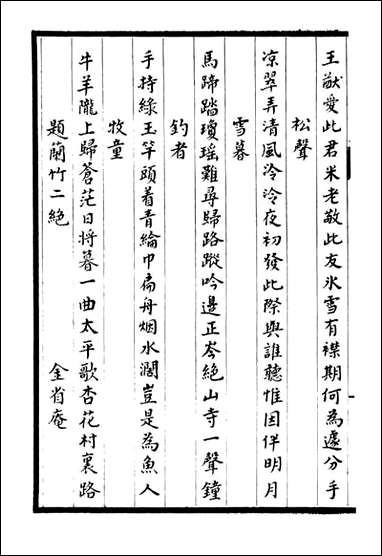 王猷愛此君米老敬此友氷雪有襟期何為遽分手
松聲
凉翠弄清風泠泠夜初發此際與誰聽惟因伴明月
雪暮
馬蹄踏瓊瑶難尋歸路蹤吟邊正岑絶山寺一聲鐘
釣者
手持綠玉竿頭着青綸巾扁舟烟水濶豈是為魚人
牧童
牛羊隴上歸蒼茫日将暮一曲太平歌杏花村裏路
題蘭竹二絶　全省庵